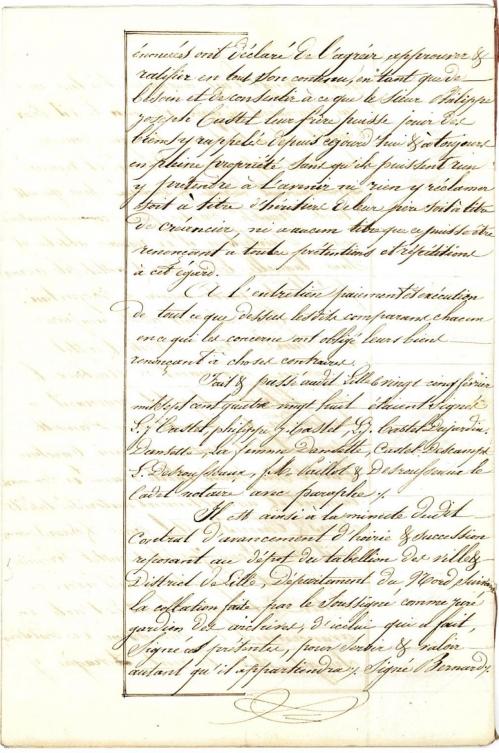 énoncés ont déclaré de l'agréer approuver &
ratifier en tout son contenu, en tant que de
besoin et de consentir à ce que le Sieur Philippe
Joseph Castel leur frère puisse jouir des
biens y rappelés depuis cejourd'hui & à toujours
en pleine propriété sans qu'ils puissent rien
y prétendre à l'avenir ni rien y réclamer
soit à titre d'héritiers de leur père soit à titre
de créancier, ni à aucun titre que ce puisse être
renonçant à toutes prétentions et répétitions
à cet égard.
A l'entretien paiement et exécution
de tout ce que dessus lesdits comparans chacun
en ce qui les concerne ont obligé leurs biens
renonçant à choses contraires.
Fait & passé audit Lille le vingt cinq février
mil sept cent quatre vingt huit étaient signés
Castel, philippe J. Castel, Castel Desjardin
la femme Danselle, Castel Descamps
L. Desrousseaux, & Desrousseaux le
Cadet notaire avec paraphe
Il est ainsi à la minute dudit
Contrat d'avancement d'hoirie & succession
reposant au dépôt du tabellion des ville &
District de Lille, Département du Nord suivant
la collation faite par le Soussigné comme juré
gardien des archives, d'icelui qui a fait,
Signé ces présentes, pour servir & valoir
autant qu'il appartiendra Signé Bernard